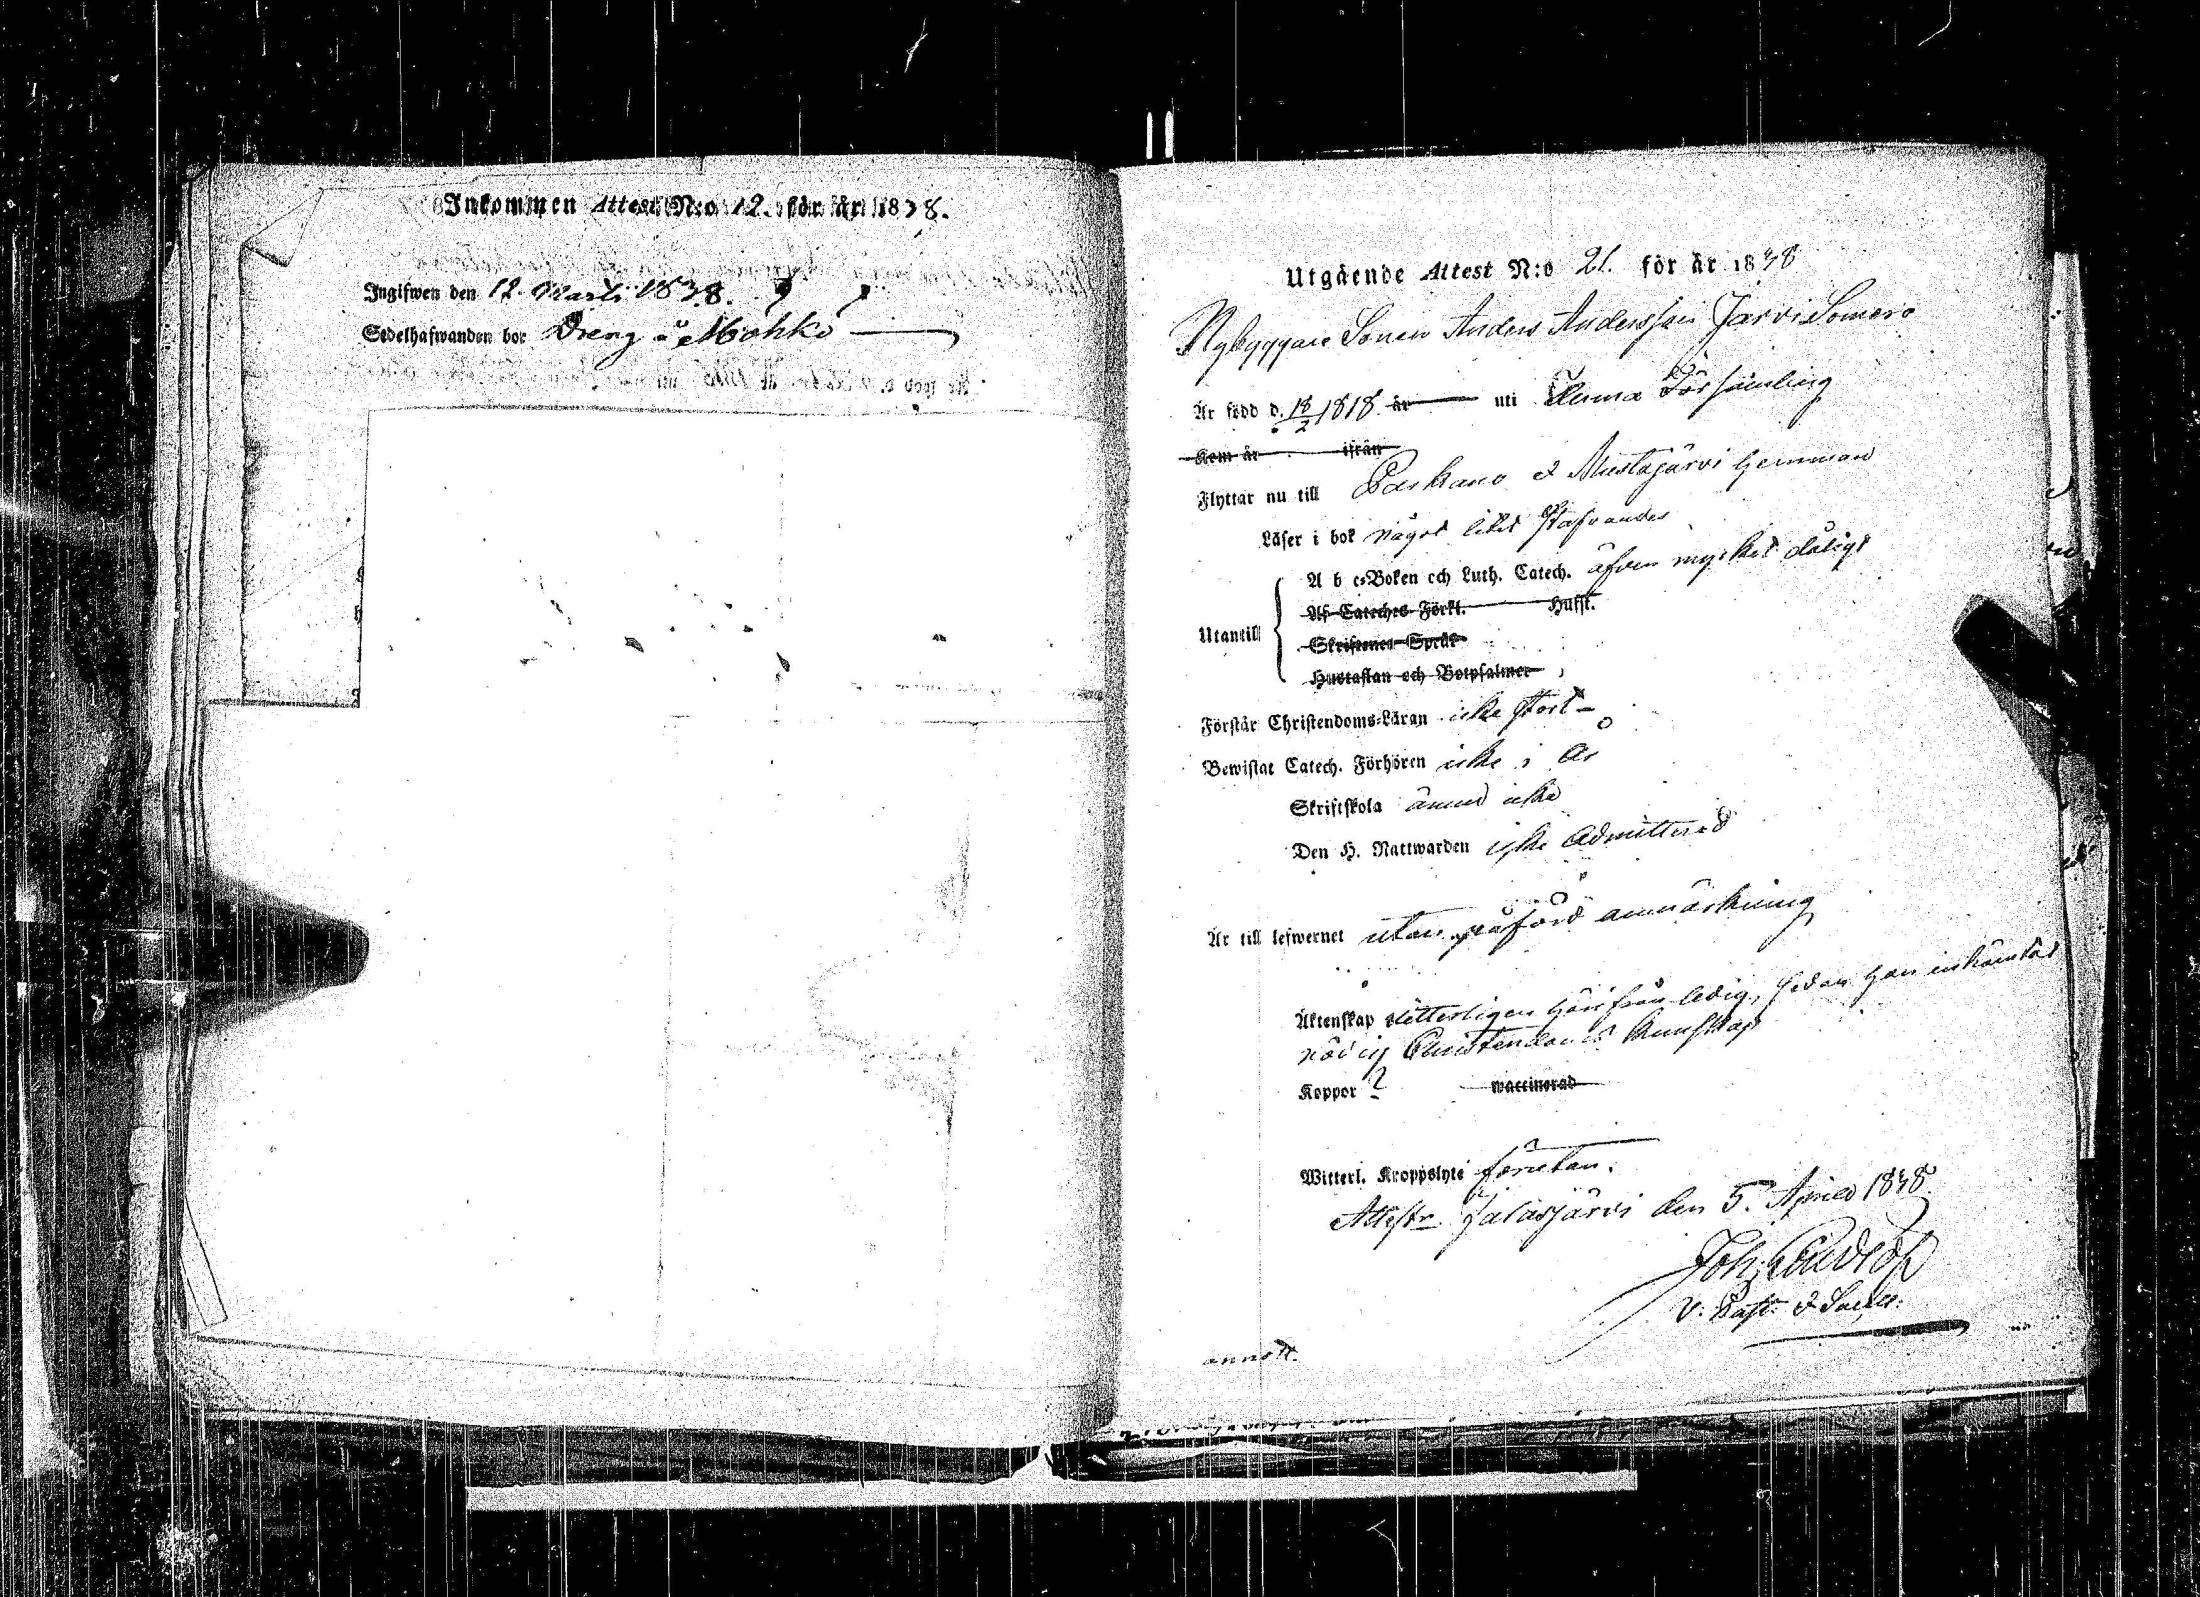 Inkommen Attest N:o 12. för år 1838.
Ingifwen den 12. Marti 1838.
Sedelhafwanden bor Dreng å Mohko
Utgående Attest N:o 21. för år 1838
Nybyggare Sonen Anders Andersson Järvi Somero
Är född d. 18/2 1818 år uti denna Församling
Kom år ifrån
Flyttar nu till Parkano & Mustajärvi hemman
Läser i bok något litet stafvandes
A b c-Boken och Luth. Catech. äfven mycket dåligt
Af Cateches Förkl. Hufst.
Utantill
Skriftenes Språk
Hustaflan och Botpsalmer
Förstår Christendoms-Läran icke stort
Bewistat Catech. Förhören icke i År
Skriftskola ännu icke
Den H. Nattwarden icke admitterad
Är till lefwernet utan påförd anmärkning
Äktenskap vitterligen härifrån ledig, sedan han inhämtat
nödig Christendoms kunskap
Koppor ? waccinerad
Witterl. Kroppslyte förutan.
Attestr. Jalasjärvi den 5. April 1838
Joh.
V. Past. & Sacell.
annott.